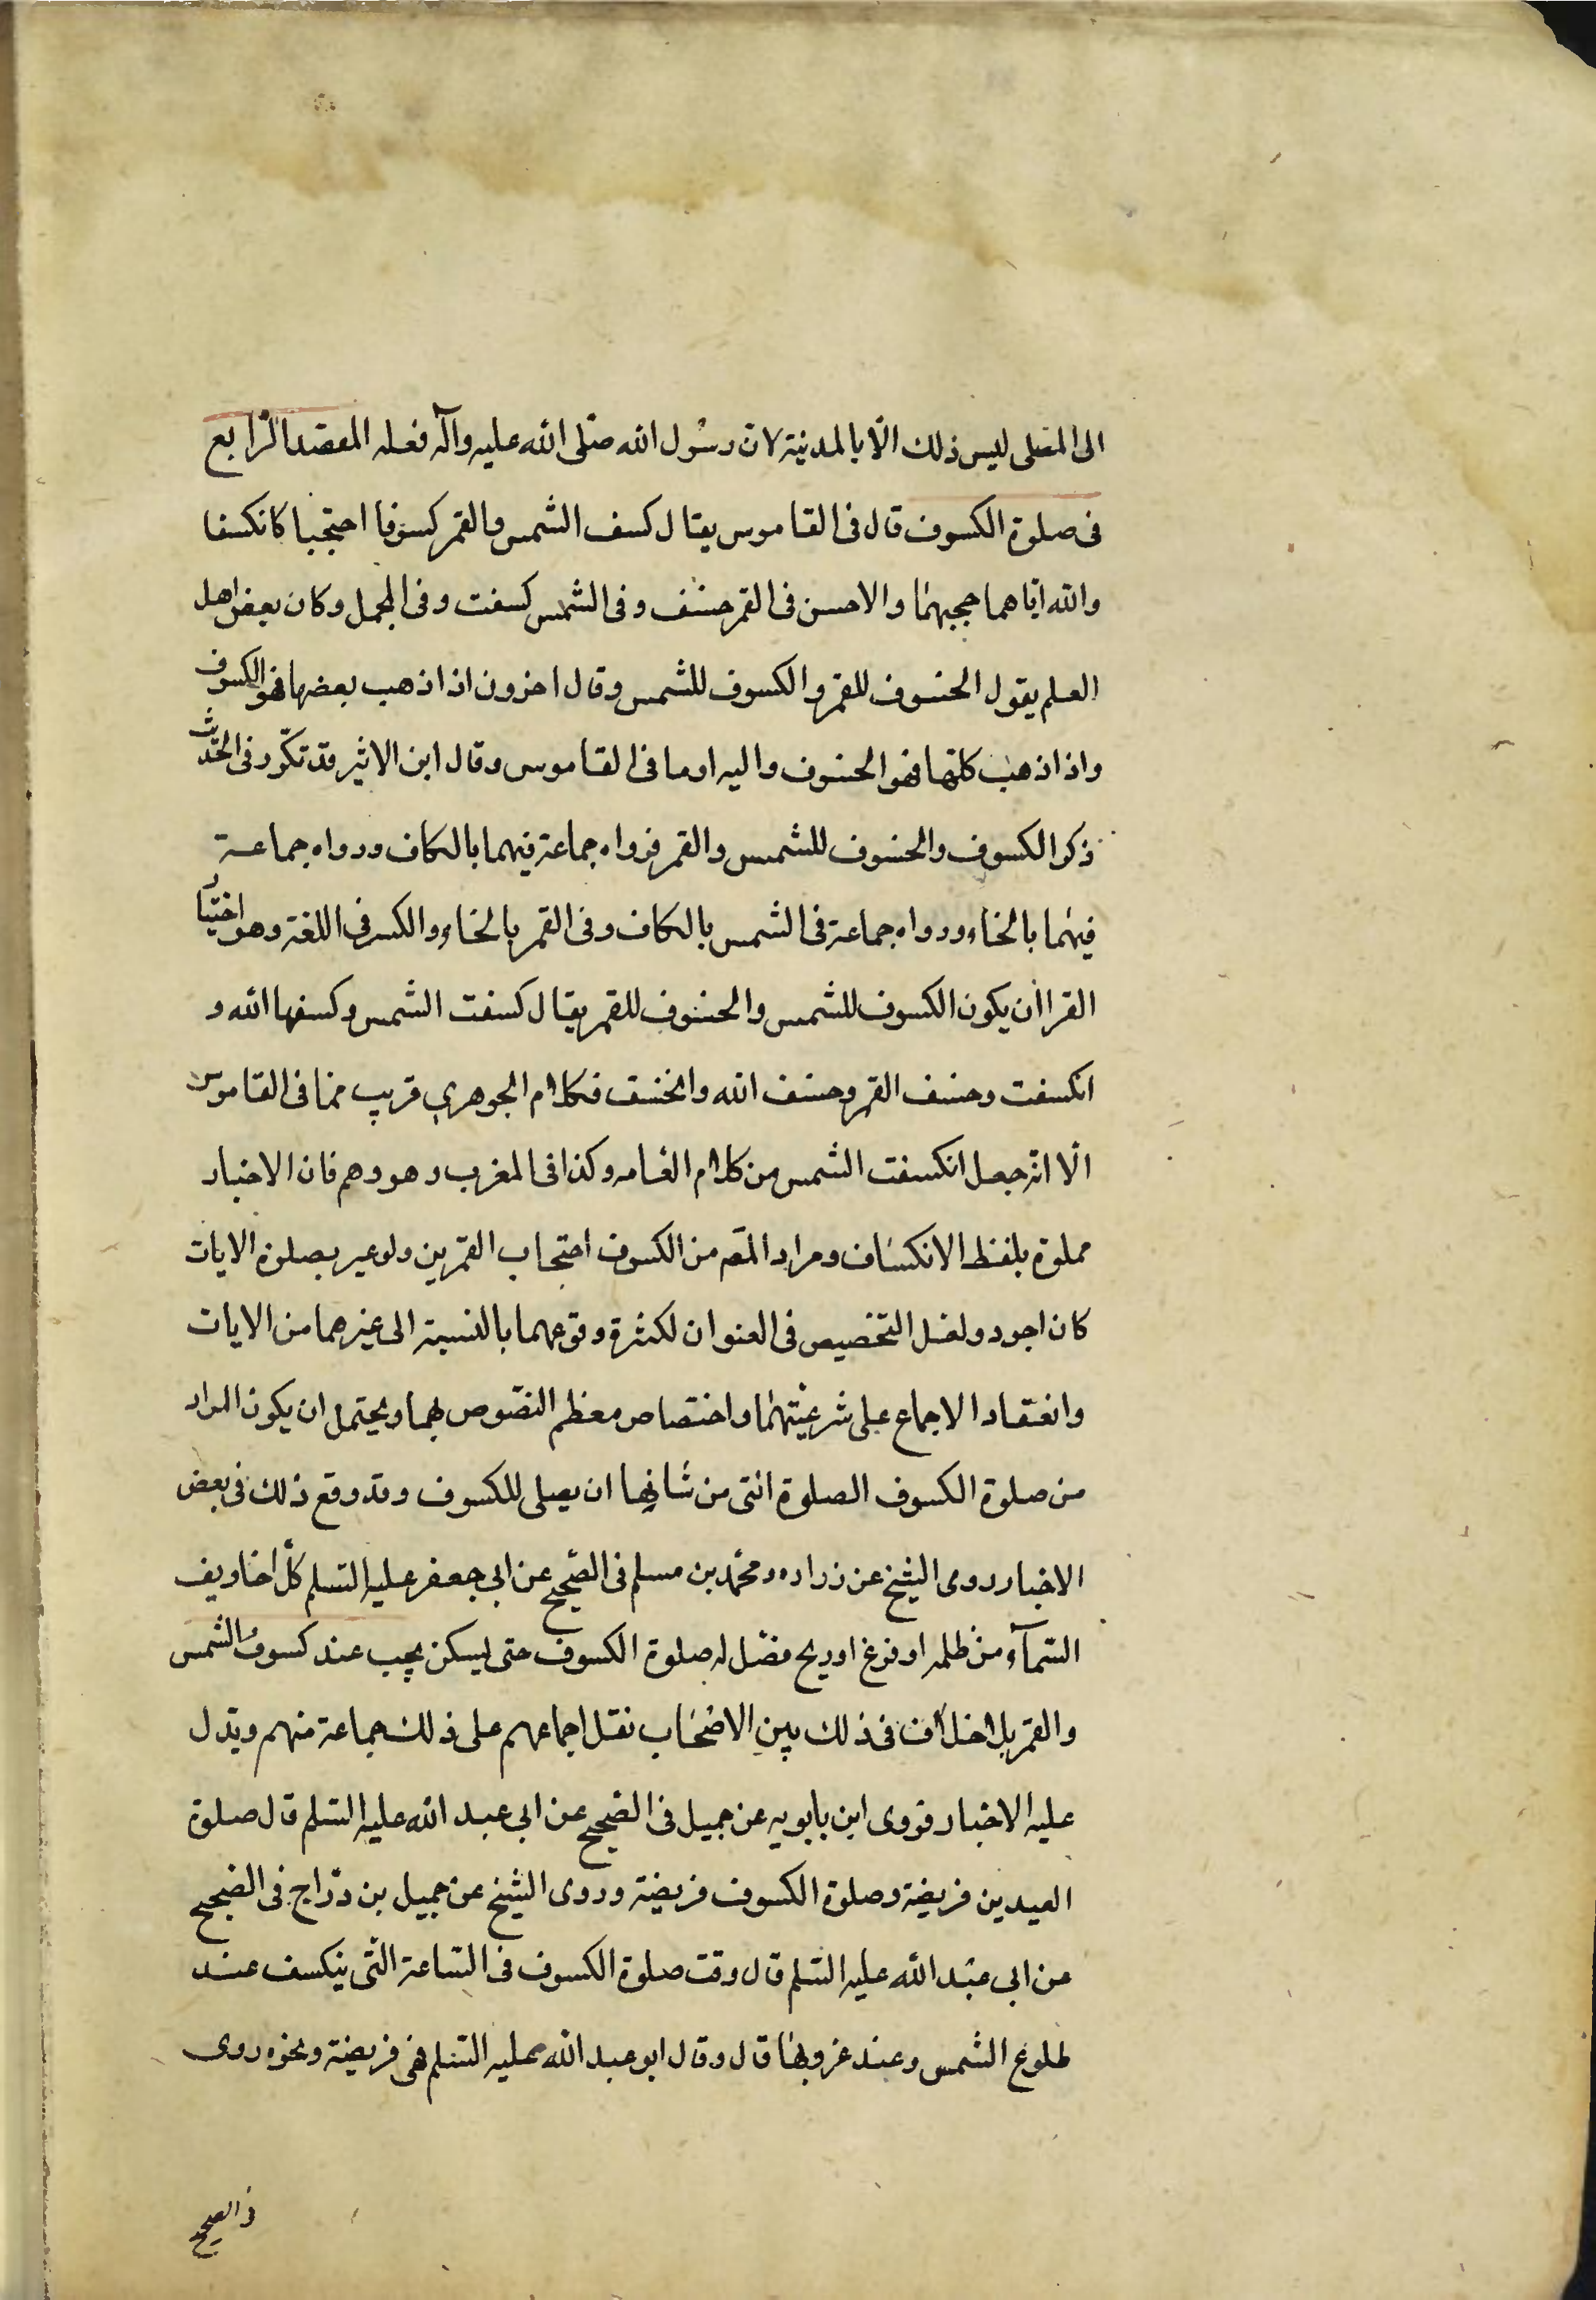 الى المصلى ليس ذلك الّا بالمدنية لان رسُول الله صلّى الله عليه وآله فعله المقصد الرّابع
فى صلوة الكسوف قال فى القاموس يقال كسف الشمس والقمر كسوفا احتجبا كانكسفا
والله ايّاهما حجبهما والاحسن فى القمر خسف وفى الشمس كسفت وفى المجمل وكان بعض اهل
العلم يقول الخسوف للقمر والكسوف للشمس وقال اخرون اذا ذهب بعضها فهو الكسوف
واذا ذهب كلها فهو الخسوف واليه اوما فى القاموس وقال ابن الاثير قد تكرّر فى الحديث
ذكر الكسوف والخسوف للشمس والقمر فرواه جماعة فيهما بالكاف ورواه جماعة
فيهما بالخاء ورواه جماعة فى الشمس بالكاف وفى القمر بالخاء والكسر فى اللغة وهو اختيار
الفرا ان يكون الكسوف للشمس والخسوف للقمر يقال كسفت الشمس وكسفها الله و
انكسفت وخسف القمر وخسف الله وانخسف فكلام الجوهري قريب مما فى القاموس
الّا انّه جعل انكسفت الشمس من كلام العامه وكذا فى المغرب وهو وهم فان الاخبار
مملوة بلفظ الانكساف ومراد المصَ من الكسوف احتجاب القمرين ولو عبر بصلوة الايات
كان اجود ولعل التخصيص فى العنوان لكثرة وقوعهما بالنسبة الى غيرهما من الايات
وانعقاد الاجماع على شرعيتهما واختصاص معظم النصّوص بهما ويحتمل ان يكون المراد
من صلوة الكسوف الصلوة التى من شانها ان يصلى للكسوف وقد وقع ذلك فى بعض
الاخبار روى الشيخ عن زراره ومحمّد بن مسلم فى الصّحيح عن ابى جعفر عليه السّلم كلّ اخاويف
السّمآء من ظلمه او فزع او ريح فصّل له صلوة الكسوف حتى يسكن يجب عند كسوف الشمس
والقمر بلا خلاف فى ذلك بين الاصحاب نقل اجماعهم على ذلك جماعة منهم ويدّل
عليه الاخبار فروى ابن بابويه عن جميل فى الصّحيح عن ابى عبد الله عليه السّلم قال صلوة
العيدين فريضة وصلوة الكسوف فريضة وروى الشيخ عن جميل بن درّاج فى الصّحيح
عن ابى عبد الله عليه السّلم قال وقت صلوة الكسوف فى السّاعة الّتى ينكسف عند
طلوع الشمس وعند غروبها قال وقال ابو عبد الله عليه السّلم هى فريضة ونحوه روى
فى الصحيح